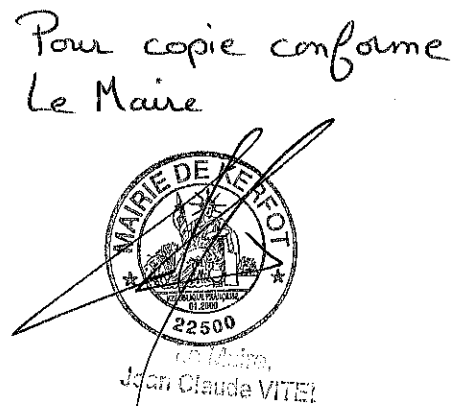 Pour copie conforme
Le Maire
MAIRIE DE KERFOT
RÉPUBLIQUE FRANÇAISE
01.2000
22500
Le Maire,
Jean Claude VITEL